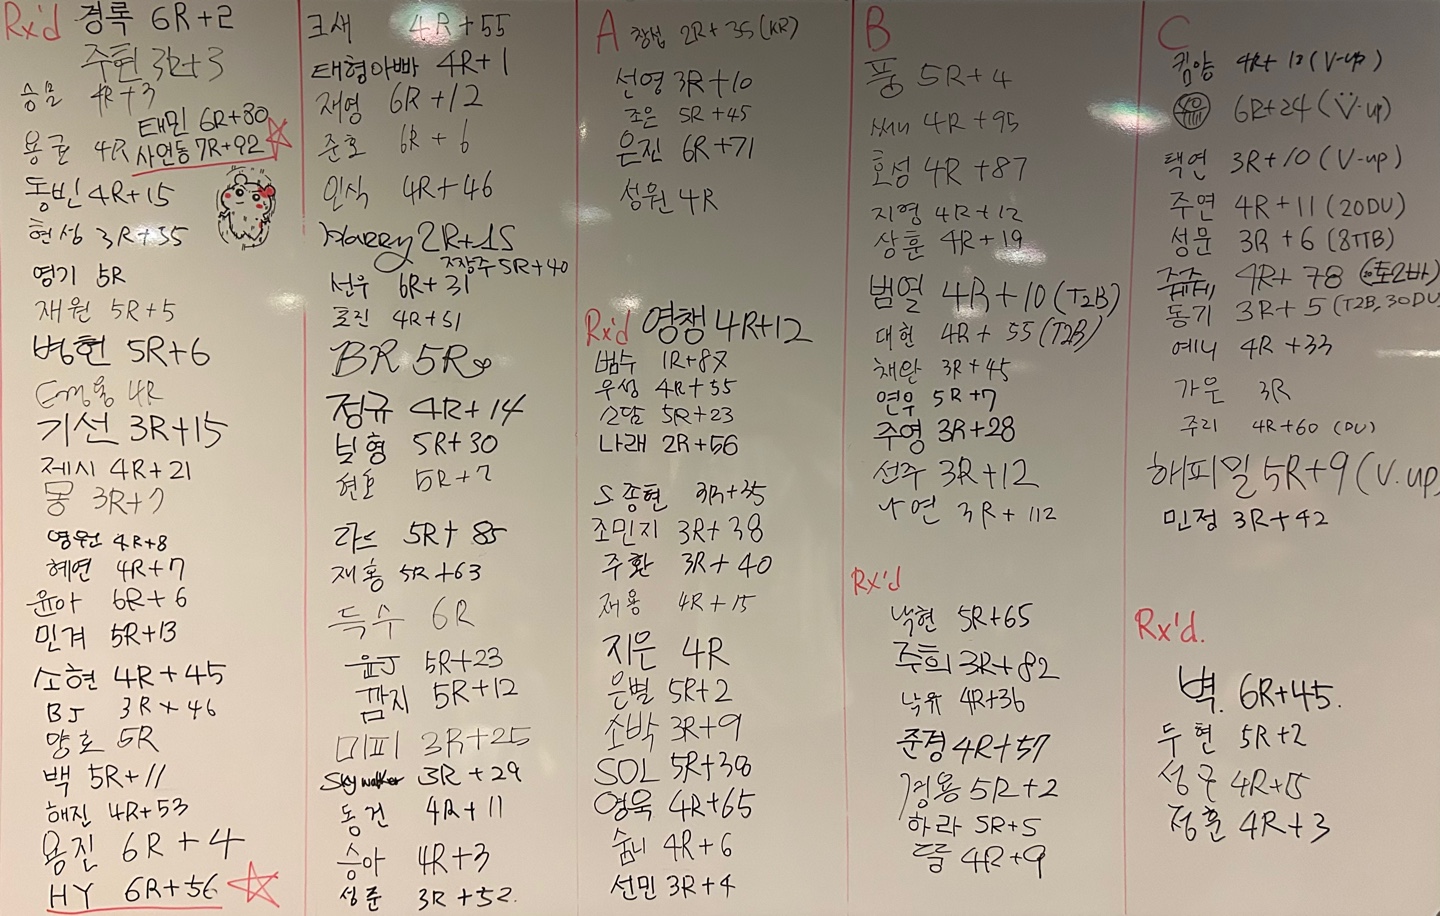 Rx'd 경록 6R+2
주현 3R+3
승모 4R+3
태민 6R+80
용균 4R
사언동 7R+92
동빈 4R+15
현성 3R+55
영기 5R
재원 5R+5
병현 5R+6
4R
기선 3R+15
제시 4R+21
몽 3R+7
영원 4R+8
혜연 4R+7
윤아 6R+6
민겨 5R+13
소현 4R+45
BJ 3R+46
양호 5R
백 5R+11
해진 4R+53
용진 6R+4
HY 6R+56
크새 4R+55
태형아빠 4R+1
재영 6R+12
준호 6R+6
인식 4R+46
Harry 2R+15
짜장주 5R+40
선우 6R+31
효진 4R+51
BR 5R
정규 4R+14
빛형 5R+30
현호 5R+7
라스 5R+85
재홍 5R+63
득수 6R
윤J 5R+23
깜지 5R+12
미피 3R+25
Sky walker 3R+29
동건 4R+11
승아 4R+3
성준 3R+52
A 창섭 2R+35 (KR)
선영 3R+10
조은 5R+45
은진 6R+71
성원 4R
Rx'd 영챙 4R+12
범수 1R+87
우성 4R+55
소담 5R+23
나래 2R+56
S 종현 3R+35
조민지 3R+38
주환 3R+40
재용 4R+15
지은 4R
은별 5R+2
소박 3R+9
SOL 5R+38
영욱 4R+65
숨니 4R+6
선민 3R+4
B
풍 5R+4
써니 4R+95
효성 4R+87
지영 4R+12
상훈 4R+19
범열 4R+10 (T2B)
대현 4R+55 (T2B)
채완 3R+45
연우 5R+7
주영 3R+28
선주 3R+12
나연 3R+112
Rx'd
낙현 5R+65
주희 3R+82
낙유 4R+36
준경 4R+57
경용 5R+2
하라 5R+5
4R+9
C
킴양 4R+10 (V-up)
6R+24 (V-up)
택연 3R+10 (V-up)
주연 4R+11 (20DU)
성문 3R+6 (8TTB)
4R+78
동기 3R+5 (T2B, 30DU)
예니 4R+33
가은 3R
주리 4R+60 (DU)
해피밀 5R+9 (V.up)
민정 3R+42
Rx'd.
벽. 6R+45.
두현 5R+2
성구 4R+15
정훈 4R+3